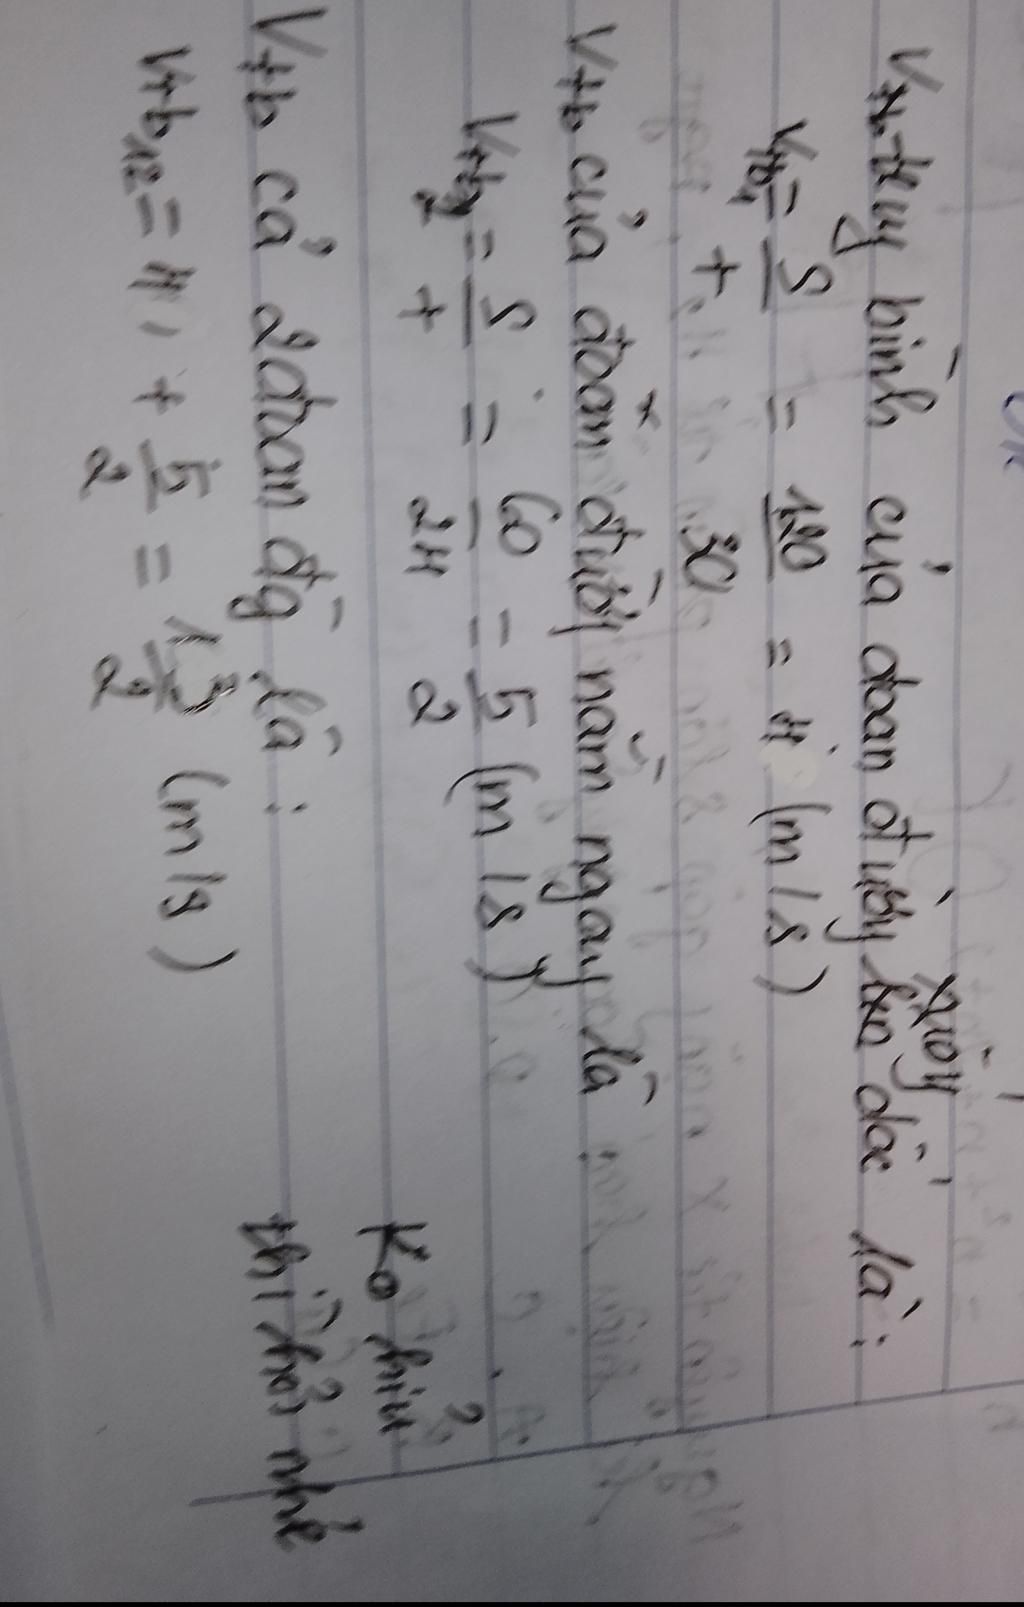 Vtb trung bình của đoạn đường xuống dốc là:
Vtb1 = S/t = 120/30 = 4 (m/s)
Vtb của đoạn đường nằm ngang là:
Vtb2 = S/t = 60/24 = 5/2 (m/s)
Vtb cả 2 đoạn đg là:
Vtb12 = 4 + 5/2 = 13/2 (m/s)
Ko hiu
thì hỏi nhé